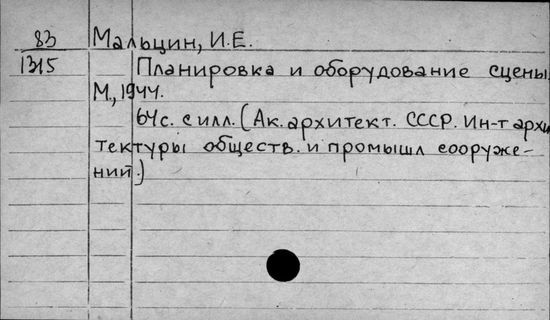 83 Мальцин, И.Е.
1315 Планировка и оборудование сцены.
М., 1944.
64с. с илл. (Ак. архитект. СССР. Ин-т архи
тектуры обществ. и промышл сооруже-
ний.)